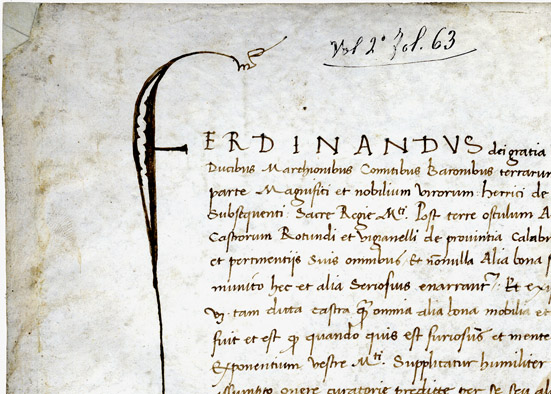 Vol 2° Fol. 63
FERDINANDVS dei gratia
Ducibus Marchionibus Comitibus Baronibus terrarum
parte Magnifici et nobilium virorum herrici de
Subsequenti Sacre Regie M.ti Post terre osculum
Castrorum Rotundi et viganelli de provintia Calabr
et pertinentijs suis omnibus Et nonnulla Alia bona
munito hec et alia seriosius enarrant Et
tam dicta castra omnia alia bona mobilia et
fuit et est quando quis est furiosus et mente
Exponentium vestre M.ti Supplicatur humiliter
assumpto onere curatorie predicte per se seu